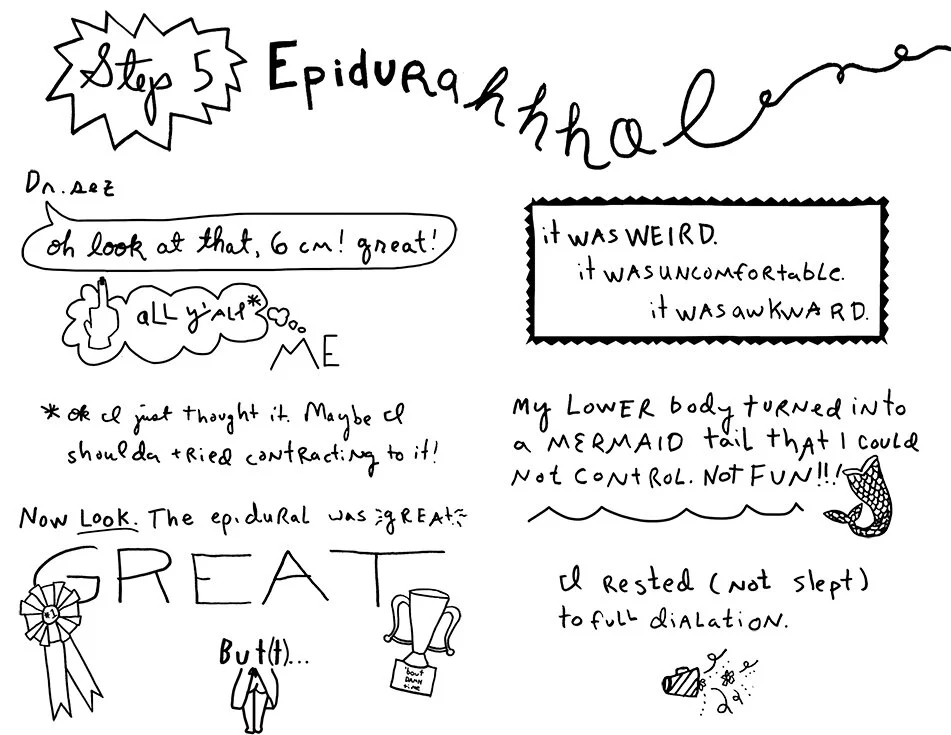 Step 5
Epidurahhhhal
Dr. sez
oh look at that, 6 cm! great!
aLL y'ALL*
ME
* ok I just thought it. Maybe I
shoulda tRied contRacting to it!
Now Look. The epiduRal was gREAt
GREAT
#1
'bout
DAMN
time
But(t)...
it WAS WEIRD.
it WAS UNCOMfoRtable.
it WAS awkWARD.
My LOWER body tURNED iNto
a MERMAID tail thAt I could
Not CONtROL. Not FUN!!!
I Rested (Not slept)
to fuLL diALation.